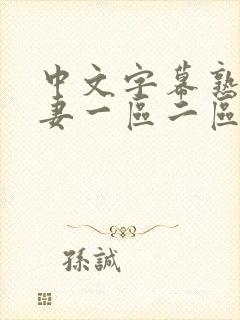 中文字幕熟
妻一區二區
孫誠